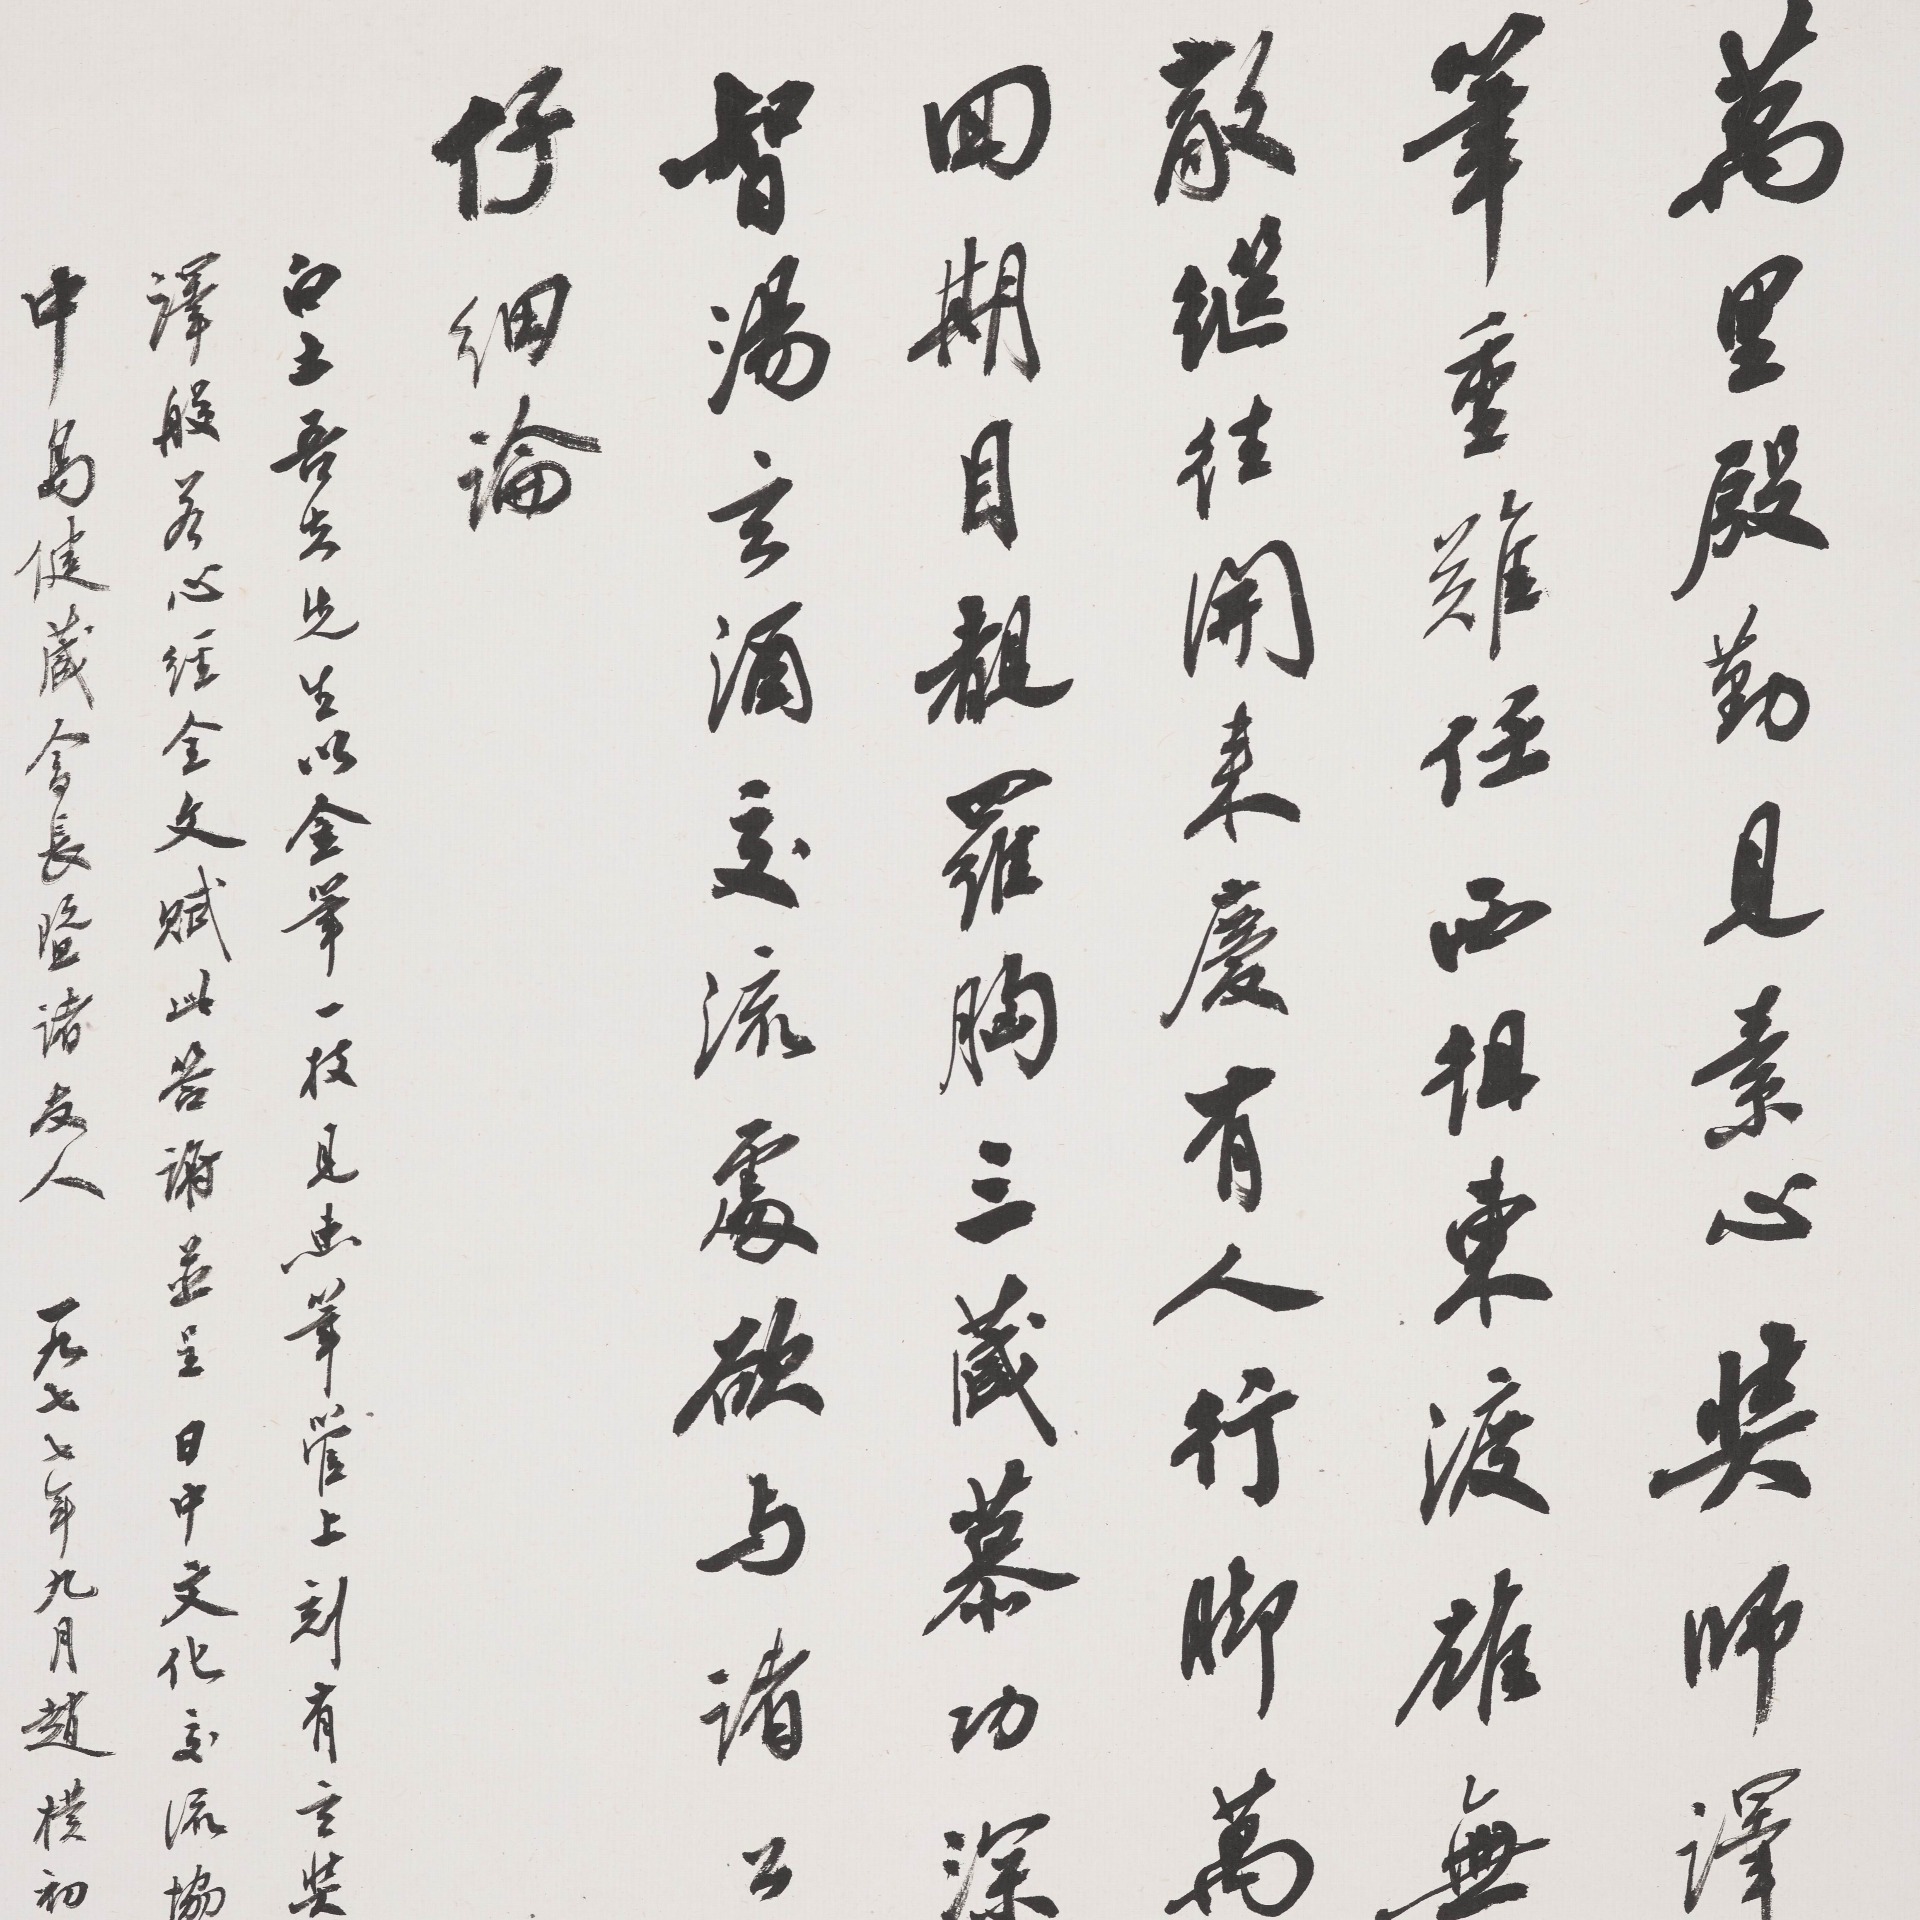 萬里殷勤見素心奘師譯
筆重難任西徂東渡雄無
敵繼往開來慶有人行腳萬
四期目覩羅胸三藏慕功深
智湯玄酒交流處欲与諸公
仔細論
白土吾夫先生以金筆一枝見惠筆管上刻有玄奘
譯般若心經全文賦此答謝並呈日中文化交流協
中島健藏會長暨諸友人 一九七七年九月趙樸初